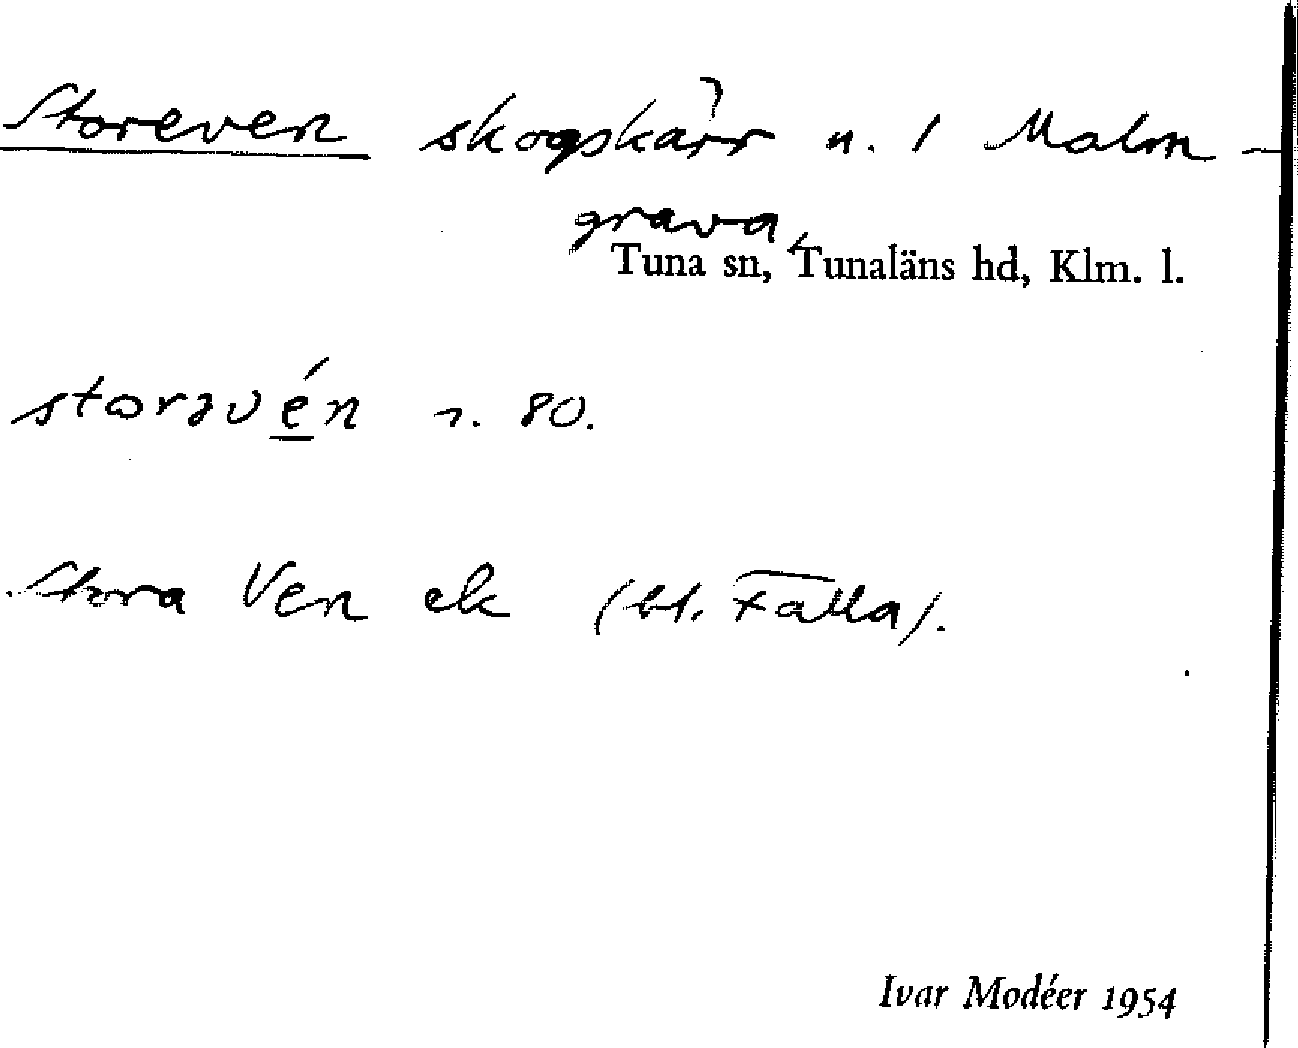 Storeven skogskärr n. 1 Malm-
grava,
Tuna sn, Tunaläns hd, Klm. l.
storəvén n. 80.
Stora Ven ek (bl. Falla).
Ivar Modéer 1954